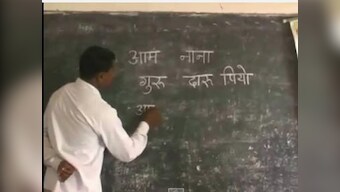 आम नाना
गुरू दारू पियो
आ